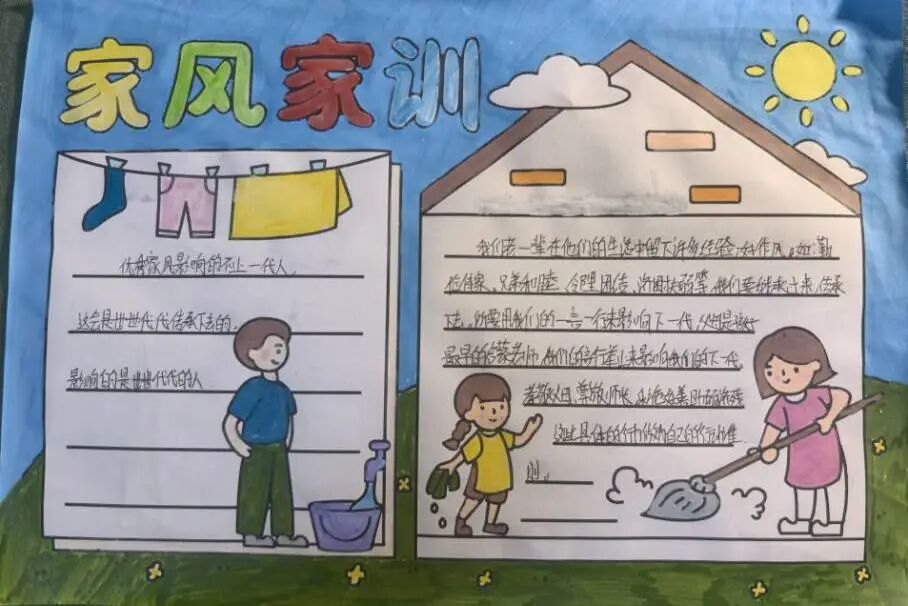 家风家训
优秀家风影响的不止一代人，
这会是世世代代传承下去的，
影响的是世世代代的人
我们老一辈在他们的生活中留下许多经验，好作风。如：勤
俭持家、兄弟和睦、邻里团结、济困扶弱等，我们要继承下来，传承
下去，所要用我们的一言一行来影响下一代，父母是孩子
最早的启蒙老师，他们的行来影响我们的下一代
孝敬父母，尊敬师长，
这些具体的行为自己的行为准
则。